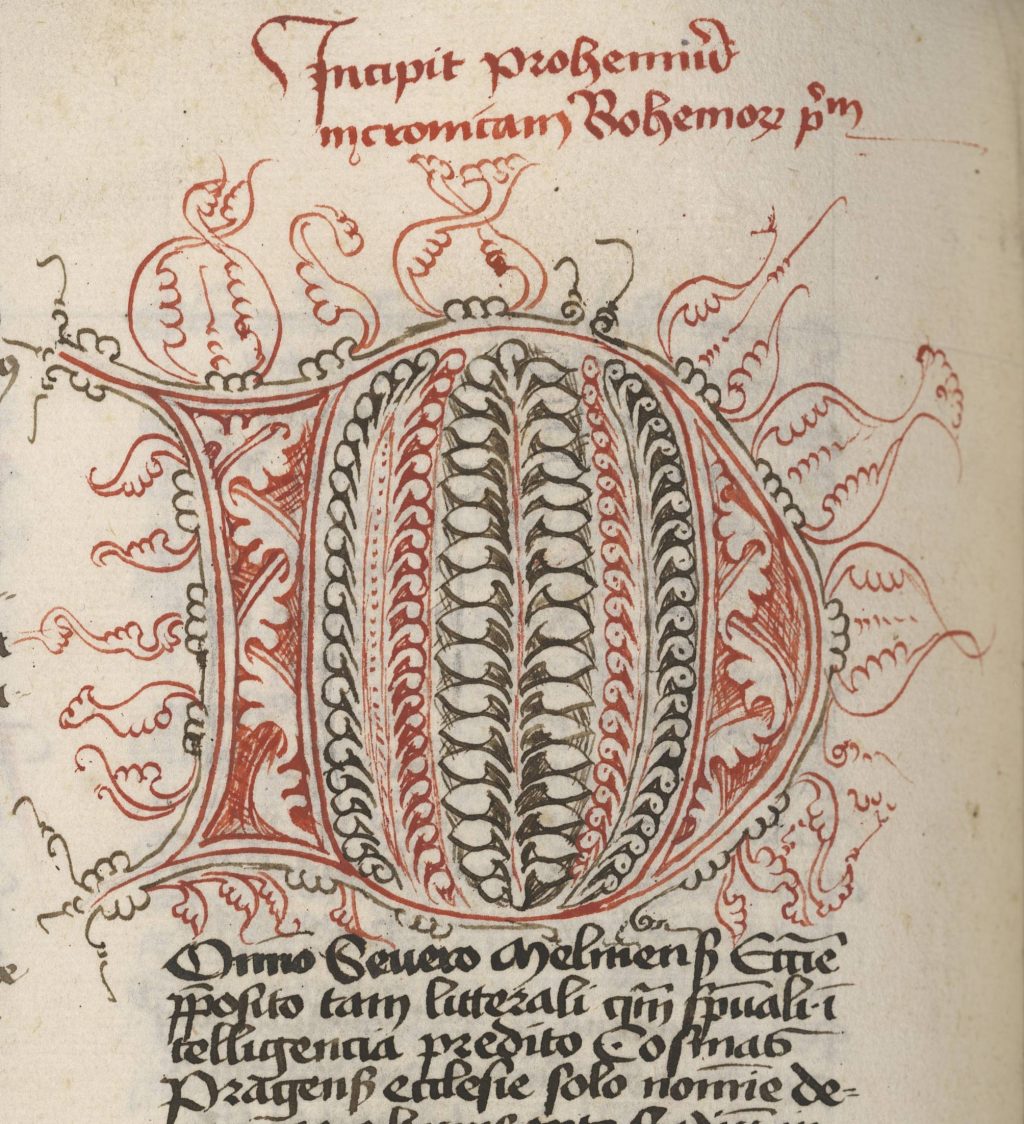 Incipit prohemiu͞
in cronicam Bohemoꝝ p͛m
D
Om̅no Seuero Melnienß Eccie͞
p̅posito tam litterali qm̅ sp̅uali i
telligencia predito Cosmas
Pragenß ecclesie solo nomi͞e de=